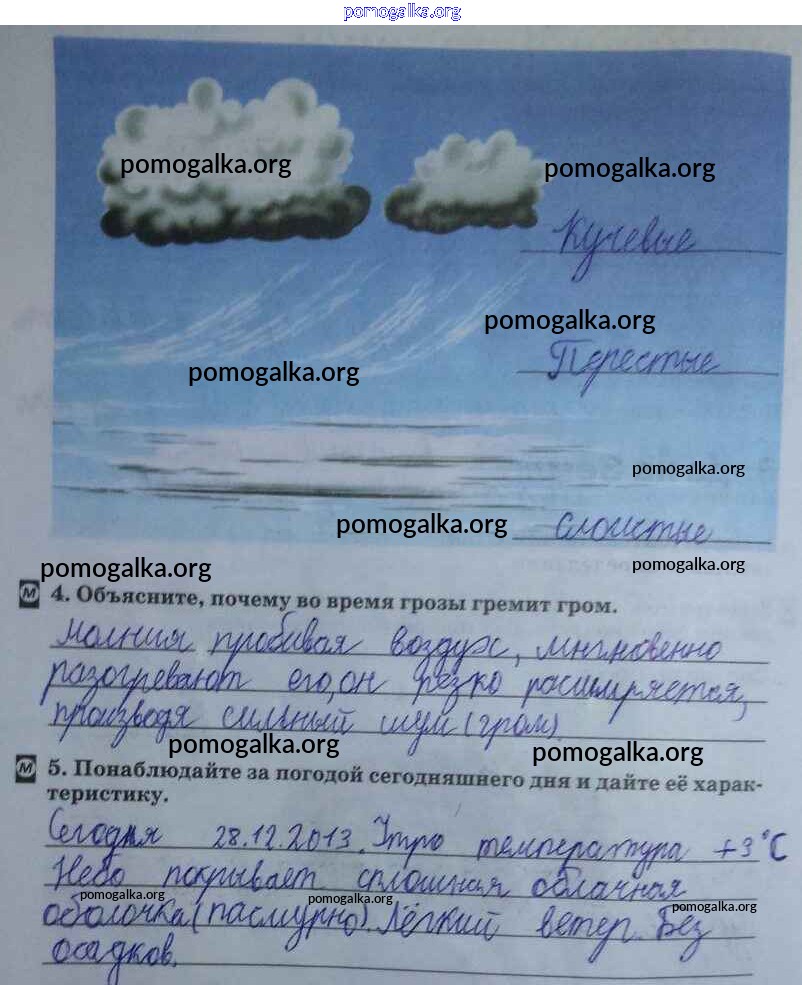 pomogalka.org
pomogalka.org
pomogalka.org
Кучевые
pomogalka.org
Перестые
pomogalka.org
pomogalka.org
pomogalka.org
Слоистые
pomogalka.org
pomogalka.org
М 4. Объясните, почему во время грозы гремит гром.
Молния пробивая воздух, мгновенно
разогревают его, он резко расширяется,
производя сильный шум (гром)
pomogalka.org
pomogalka.org
М 5. Понаблюдайте за погодой сегодняшнего дня и дайте её харак-
теристику.
Сегодня 28.12.2013. Утро температура +3°С
Небо покрывает сплошная облачная
pomogalka.org
pomogalka.org
pomogalka.org
оболочка (пасмурно). Лёгкий ветер. Без
осадков.